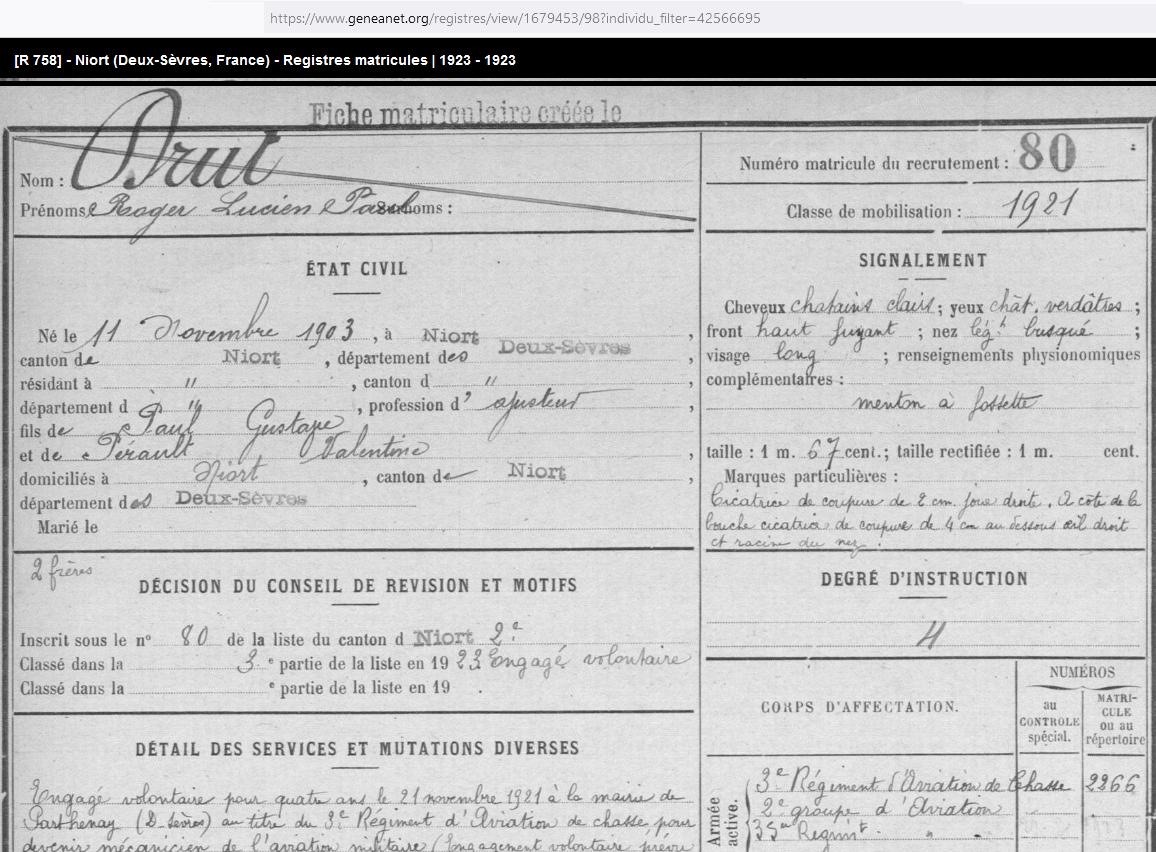 https://www.geneanet.org/registres/view/1679453/98?individu_filter=42566695
[R 758] - Niort (Deux-Sèvres, France) - Registres matricules | 1923 - 1923
Fiche matriculaire créée le
Nom : Drut
Prénoms Roger Lucien Paul Surnoms :
Numéro matricule du recrutement : 80
Classe de mobilisation : 1921
ÉTAT CIVIL
Né le 11 Novembre 1903, à Niort,
canton de Niort, département des Deux-Sèvres,
résidant à ", canton d ",
département d ", profession d' ajusteur,
fils de Paul Gustave
et de Pérault Valentine,
domiciliés à Niort, canton de Niort,
département des Deux-Sèvres
Marié le
SIGNALEMENT
Cheveux chatains clairs; yeux chât. verdâtres;
front haut fuyant; nez lég.t busqué;
visage long; renseignements physionomiques
complémentaires :
menton à fossette
taille : 1 m. 67 cent.; taille rectifiée : 1 m. cent.
Marques particulières :
Cicatrice de coupure de 2 cm. joue droite. A côté de la
bouche cicatrice de coupure de 4 cm au dessous œil droit
et racine du nez.
2 frères
DÉCISION DU CONSEIL DE REVISION ET MOTIFS
Inscrit sous le n° 80 de la liste du canton d Niort 2e
Classé dans la 3e partie de la liste en 1923 Engagé volontaire
Classé dans la e partie de la liste en 19 .
DEGRÉ D'INSTRUCTION
4
DÉTAIL DES SERVICES ET MUTATIONS DIVERSES
Engagé volontaire pour quatre ans le 21 novembre 1921 à la mairie de
Parthenay (D-Sèvres) au titre du 3e Régiment d'Aviation de chasse pour
devenir mécanicien de l'aviation militaire (Engagement volontaire prévu
CORPS D'AFFECTATION.
NUMÉROS
au CONTROLE spécial.
MATRI-CULE ou au répertoire
Armée active.
3e Régiment d'Aviation de Chasse 2266
2e groupe d'Aviation
35e Regimt. " "